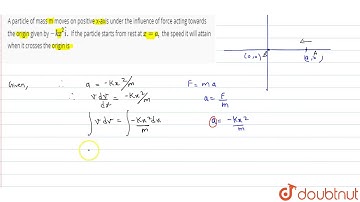 A particle of mass m moves on positive x-axis under the influence of force acting towards
the origin given by −kx² î. If the particle starts from rest at x = a, the speed it will attain
when it crosses the origin is
(0,0) (a,0) A
Given, ∴ a = -Kx²/m F = ma
∴ v dv/dx = -Kx²/m a = F/m
∫ v dv = ∫ -Kx² dx/m a = -Kx²/m
∴
doubtnut